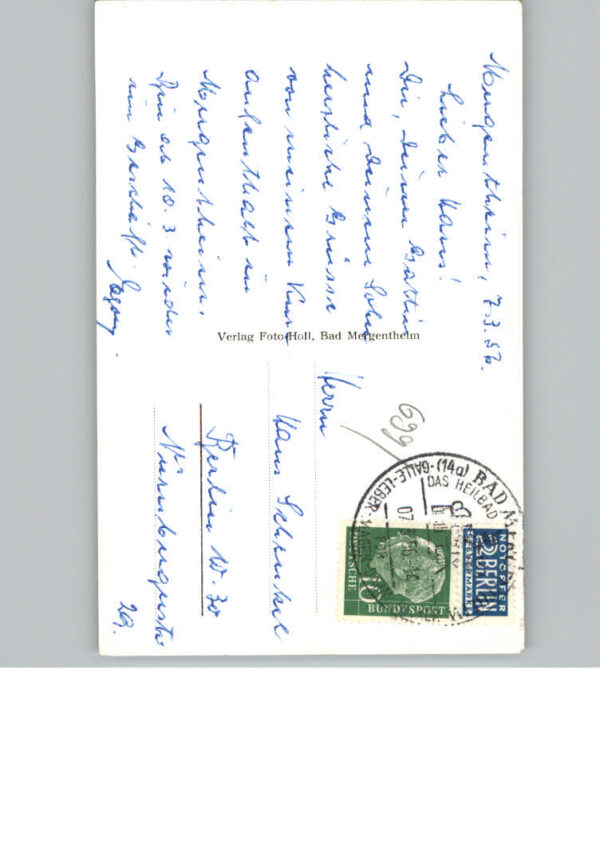 Mergentheim, 7.3.56.
Lieber Hans!
Dir, Deiner Gattin
und Deinem Sohn
herzliche Grüsse
von meinem Kur-
aufenthalt in
Mergentheim.
Bin ab 10.3 wieder
im Geschäft.
Verlag Foto-Holl, Bad Mergentheim
Herrn
Hans Schenkel
Berlin W. 30
Nürnbergerstr
29.
699
(14a) BAD
GALLE-LEBER-
DAS HEILBAD
07
NOTOPFER
2 BERLIN
STEUERMARKE
DEUTSCHE
BUNDESPOST
10